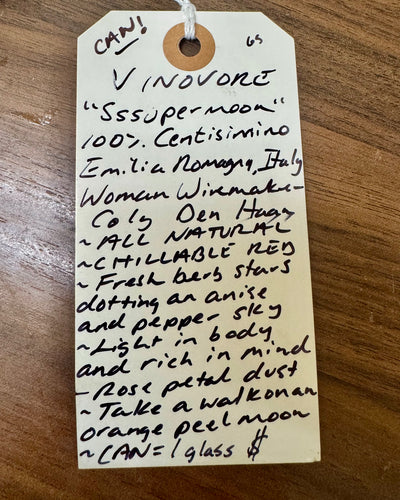 CAN!
65
VINOVORE
"Sssupermoon"
100% Centisimino
Emilia Romagna, Italy
Woman Winemaker
Coly Den Haan
~ALL NATURAL
~CHILLABLE RED
~Fresh berb stars
dotting an anise
and pepper sky
~Light in body
and rich in mind
~Rose petal dust
~Take a walk on an
orange peel moon
~CAN=1 glass $